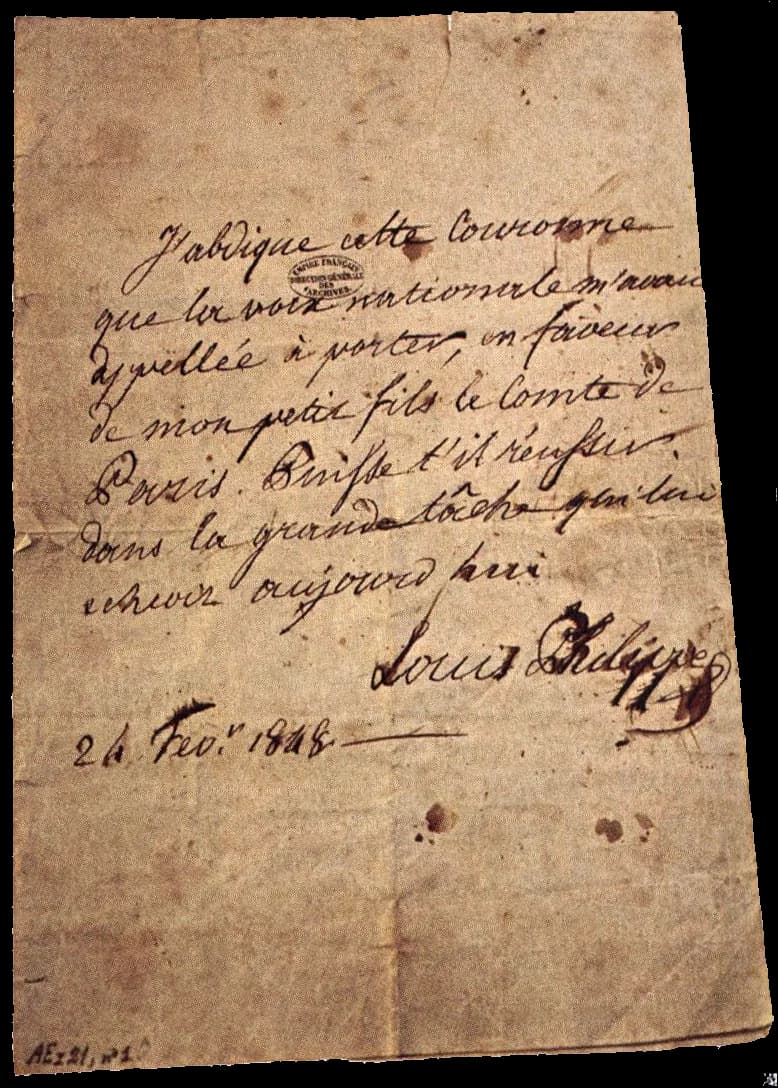 J'abdique cette Couronne
EMPIRE FRANÇAIS
DIRECTION GÉNÉRALE
DES
ARCHIVES
que la voix nationale m'avait
appellée à porter, en faveur
de mon petit fils le Comte de
Paris. Puisse t'il réussir
dans la grande tâche qui lui
echeoit aujourd'hui
Louis Philippe
24 Fevr. 1848
AE I 21, n° 10